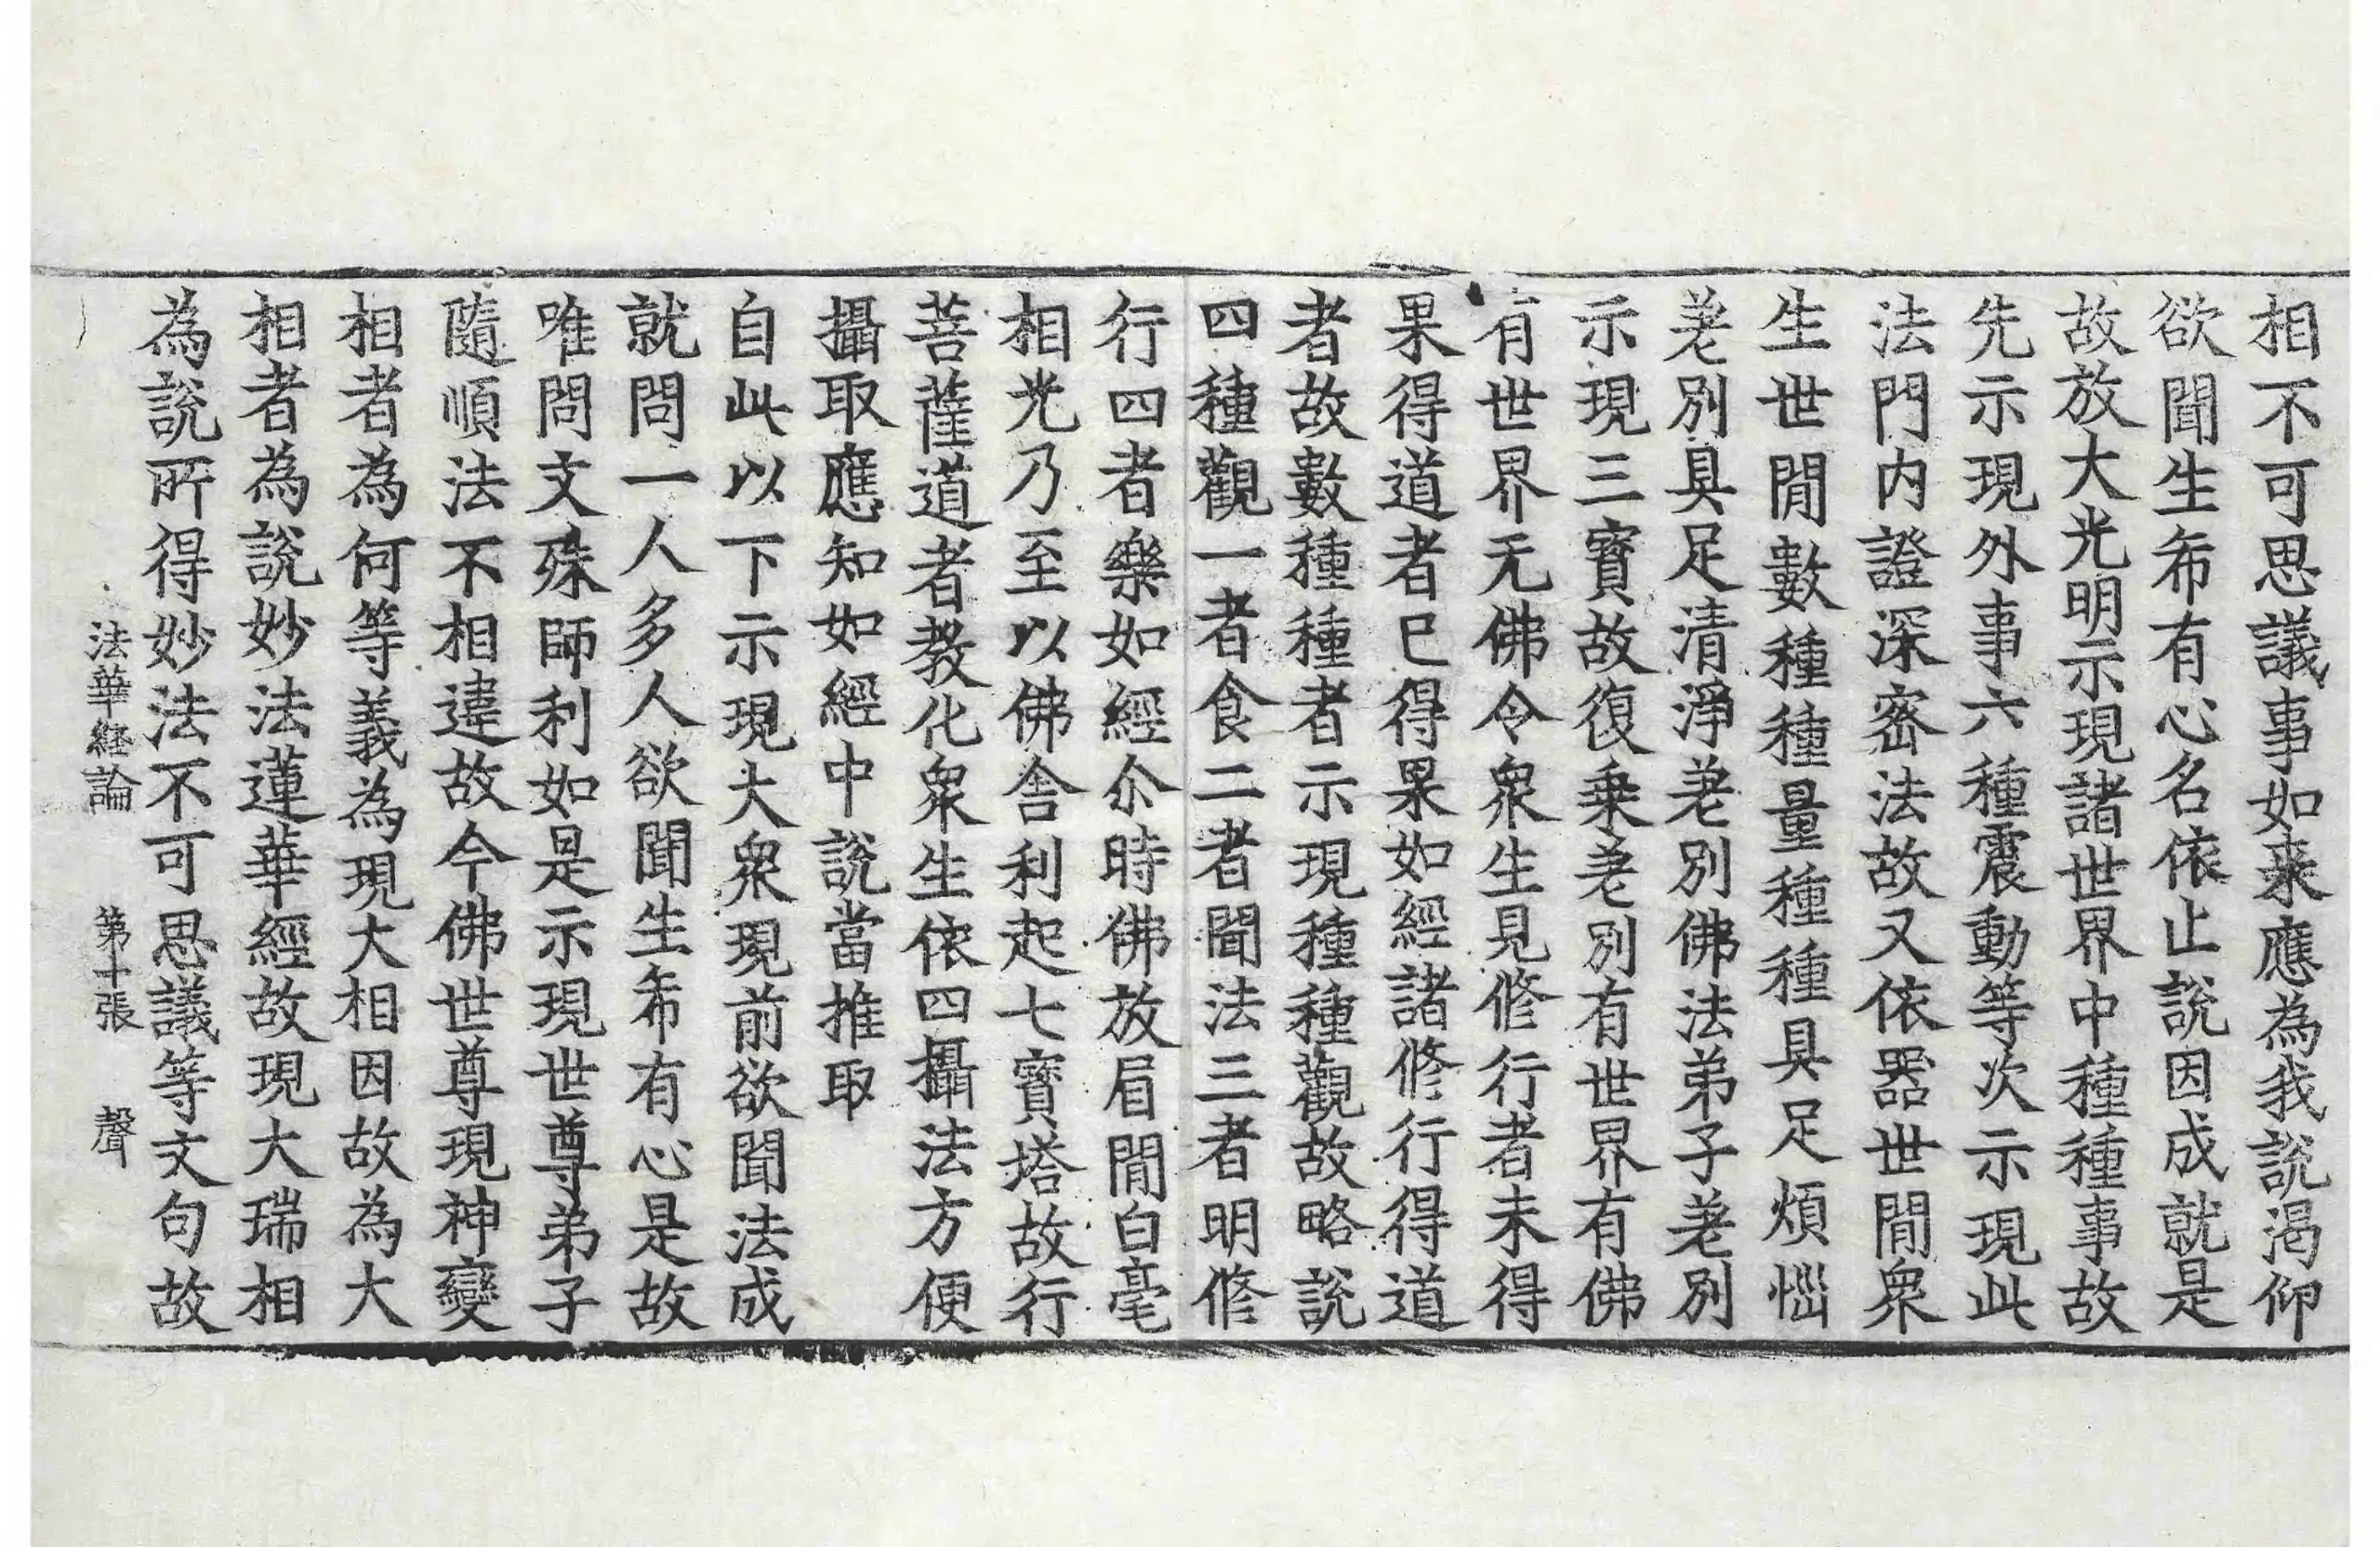 相不可思議事如来應為我說渇仰
欲聞生希有心名依止說因成就是
故放大光明示現諸世界中種種事故
先示現外事六種震動等次示現此
法門内證深密法故又依器世間衆
生世間數種種量種種具足煩惱
差別具足清淨差別佛法弟子差別
示現三寳故復乗差別有世界有佛
有世界无佛令衆生見修行者未得
果得道者已得果如經諸修行得道
者故數種種者示現種種觀故略說
四種觀一者食二者聞法三者明修
行四者樂如經尒時佛放眉間白毫
相光乃至以佛舎利起七寳塔故行
菩薩道者教化衆生依四攝法方便
攝取應知如經中說當推取
自此以下示現大衆現前欲聞法成
就問一人多人欲聞生希有心是故
唯問文殊師利如是示現世尊弟子
隨順法不相違故今佛世尊現神變
相者為何等義為現大相因故為大
相者為說妙法蓮華經故現大瑞相
為說所得妙法不可思議等文句故
法華経論 第十張 聲